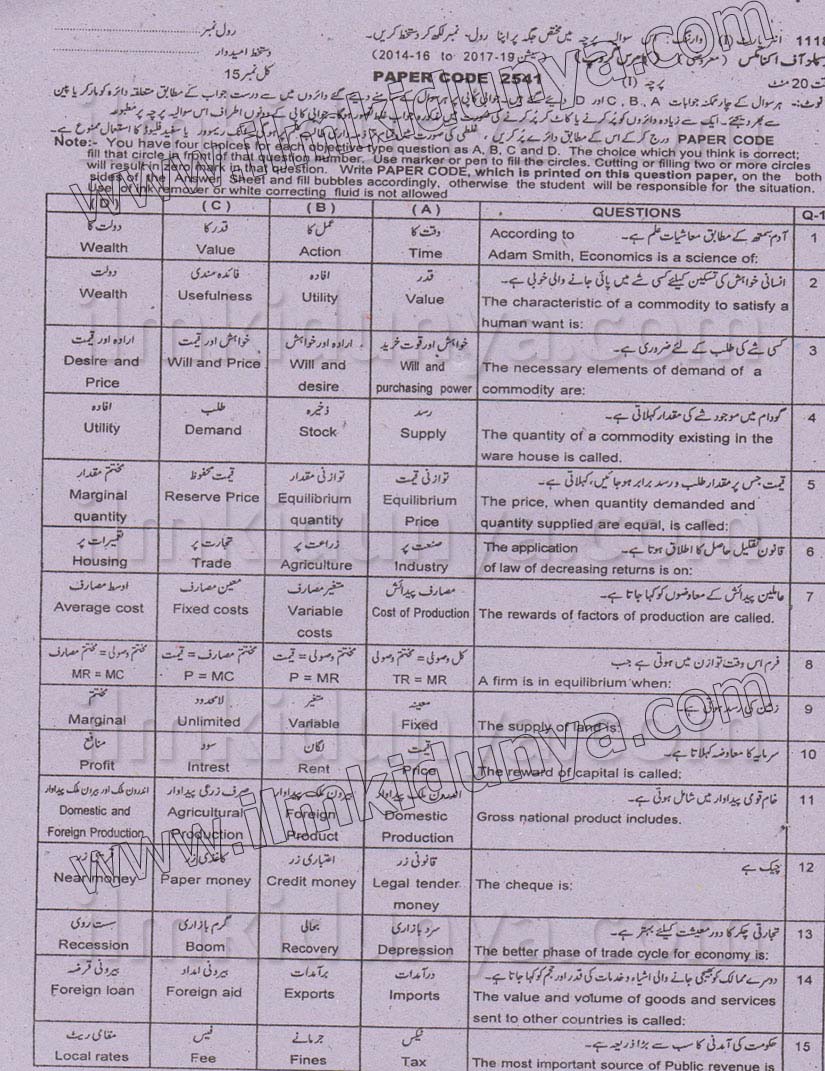 1118 انٹرپارٹ (I) وارننگ: اس سوالیہ پرچہ میں مختص جگہ پر اپنا رول نمبر لکھ کر دستخط کریں۔ رول نمبر
(2014-16 to 2017-19 سیشن) دستخط امیدوار
پرچہ (I) PAPER CODE 2541 کل نمبر 15
نوٹ:- ہر سوال کے چار ممکنہ جوابات A، B، C اور D دیئے گئے ہیں۔
PAPER CODE درج کر کے اس کے مطابق دائرے پُر کریں،
Note:- You have four choices for each objective type question as A, B, C and D. The choice which you think is correct;
fill that circle in front of that question number. Use marker or pen to fill the circles. Cutting or filling two or more circles
will result in zero mark in that question. Write PAPER CODE, which is printed on this question paper, on the both
sides of the Answer Sheet and fill bubbles accordingly, otherwise the student will be responsible for the situation.
Use of ink remover or white correcting fluid is not allowed
(D) (C) (B) (A) QUESTIONS Q-1
دولت کا قدر کا عمل کا وقت کا According to آدم سمتھ کے مطابق معاشیات علم ہے۔ 1
Wealth Value Action Time Adam Smith, Economics is a science of:
دولت فائدہ مندی افادہ قدر انسانی خواہش کی تسکین کیلئے کسی شے میں پائی جانے والی خوبی ہے۔ 2
Wealth Usefulness Utility Value The characteristic of a commodity to satisfy a
human want is:
ارادہ اور قیمت خواہش اور قیمت ارادہ اور خواہش خواہش اور قوت خرید کسی شے کی طلب کے لئے ضروری ہے۔ 3
Desire and Price Will and Price Will and desire Will and purchasing power The necessary elements of demand of a
commodity are:
افادہ طلب ذخیرہ رسد گودام میں موجود شے کی مقدار کہلاتی ہے۔ 4
Utility Demand Stock Supply The quantity of a commodity existing in the
ware house is called.
مختتم مقدار قیمت محفوظ توازنی مقدار توازنی قیمت قیمت جس پر مقدار طلب و رسد برابر ہو جائیں، کہلاتی ہے۔ 5
Marginal quantity Reserve Price Equilibrium quantity Equilibrium Price The price, when quantity demanded and
quantity supplied are equal, is called:
تعمیرات پر تجارت پر زراعت پر صنعت پر The application قانون تقلیل حاصل کا اطلاق ہوتا ہے۔ 6
Housing Trade Agriculture Industry of law of decreasing returns is on:
اوسط مصارف معین مصارف متغیر مصارف مصارف پیدائش عاملین پیدائش کے معاوضوں کو کہا جاتا ہے۔ 7
Average cost Fixed costs Variable costs Cost of Production The rewards of factors of production are called.
مختتم وصولی = مختتم مصارف مختتم مصارف = قیمت مختتم وصولی = قیمت کل وصولی = مختتم وصولی فرم اس وقت توازن میں ہوتی ہے جب 8
MR = MC P = MC P = MR TR = MR A firm is in equilibrium when:
مختتم لامحدود متغیر معینہ زمین کی رسد ہوتی ہے۔ 9
Marginal Unlimited Variable Fixed The supply of land is
منافع سود لگان قیمت سرمایہ کا معاوضہ کہلاتا ہے۔ 10
Profit Intrest Rent Price The reward of capital is called:
اندرون ملک اور بیرون ملک پیداوار صرف زرعی پیداوار بیرون ملک پیداوار اندرون ملک پیداوار خام قومی پیداوار میں شامل ہوتی ہے۔ 11
Domestic and Foreign Production Agricultural Production Foreign Product Domestic Production Gross national product includes.
قریبی زر کاغذی زر اعتباری زر قانونی زر چیک ہے 12
Near money Paper money Credit money Legal tender money The cheque is:
سست روی گرم بازاری بحالی سرد بازاری تجارتی چکر کا دور معیشت کیلئے بہتر ہے۔ 13
Recession Boom Recovery Depression The better phase of trade cycle for economy is:
بیرونی قرضہ بیرونی امداد برآمدات درآمدات دوسرے ممالک کو بھیجی جانے والی اشیاء و خدمات کی قدر اور حجم کو کہا جاتا ہے۔ 14
Foreign loan Foreign aid Exports Imports The value and volume of goods and services
sent to other countries is called:
مقامی ریٹ فیس جرمانے ٹیکس حکومت کی آمدنی کا سب سے بڑا ذریعہ ہے۔ 15
Local rates Fee Fines Tax The most important source of Public revenue is
www.ilmkidunya.com
www.ilmkidunya.com
ilmkidunya.com
ilmkidunya.com
ilmkidunya.com
ilmkidunya.com